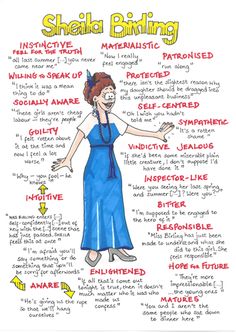 Sheila Birling
INSTINCTIVE
FEEL FOR THE TRUTH
"all last summer [...] you never
came near me"
WILLING TO SPEAK UP
"I think it was a mean
thing to do"
SOCIALLY AWARE
"These girls aren't cheap
labour - they're people"
GUILTY
"I felt rotten about
it at the time and
now I feel a lot
worse"
"Why - you fool - he
knows"
INTUITIVE
"I'm afraid you'll
say something or do
something that you'll
be sorry for afterwards"
AWARE
"He's giving us the rope
so that we'll hang
ourselves"
MATERIALISTIC
"Now I really
feel
engaged"
PATRONISED
"run along"
PROTECTED
"there isn't the slightest reason why
my daughter should be dragged into
this unpleasant business"
SELF-CENTRED
"Oh I wish you hadn't
told me"
SYMPATHETIC
"It's a rotten
shame"
VINDICTIVE JEALOUS
"If she'd been some miserable plain
little creature, I don't suppose I'd
have done it"
INSPECTOR-LIKE
"Were you seeing her last spring
and summer? [...] Were you?"
BITTER
"I'm supposed to be engaged to
the hero of it"
RESPONSIBLE
"Miss Birling has just been
made to understand what she
did to this girl. She feels
responsible"
HOPE FOR FUTURE
"They're more
impressionable [...]
the young ones"
ENLIGHTENED
"If all that's come out
tonight is true, then it doesn't
much matter who it was who
made us
confess"
MATURES
"You and I aren't the
same people who sat down
to dinner here"